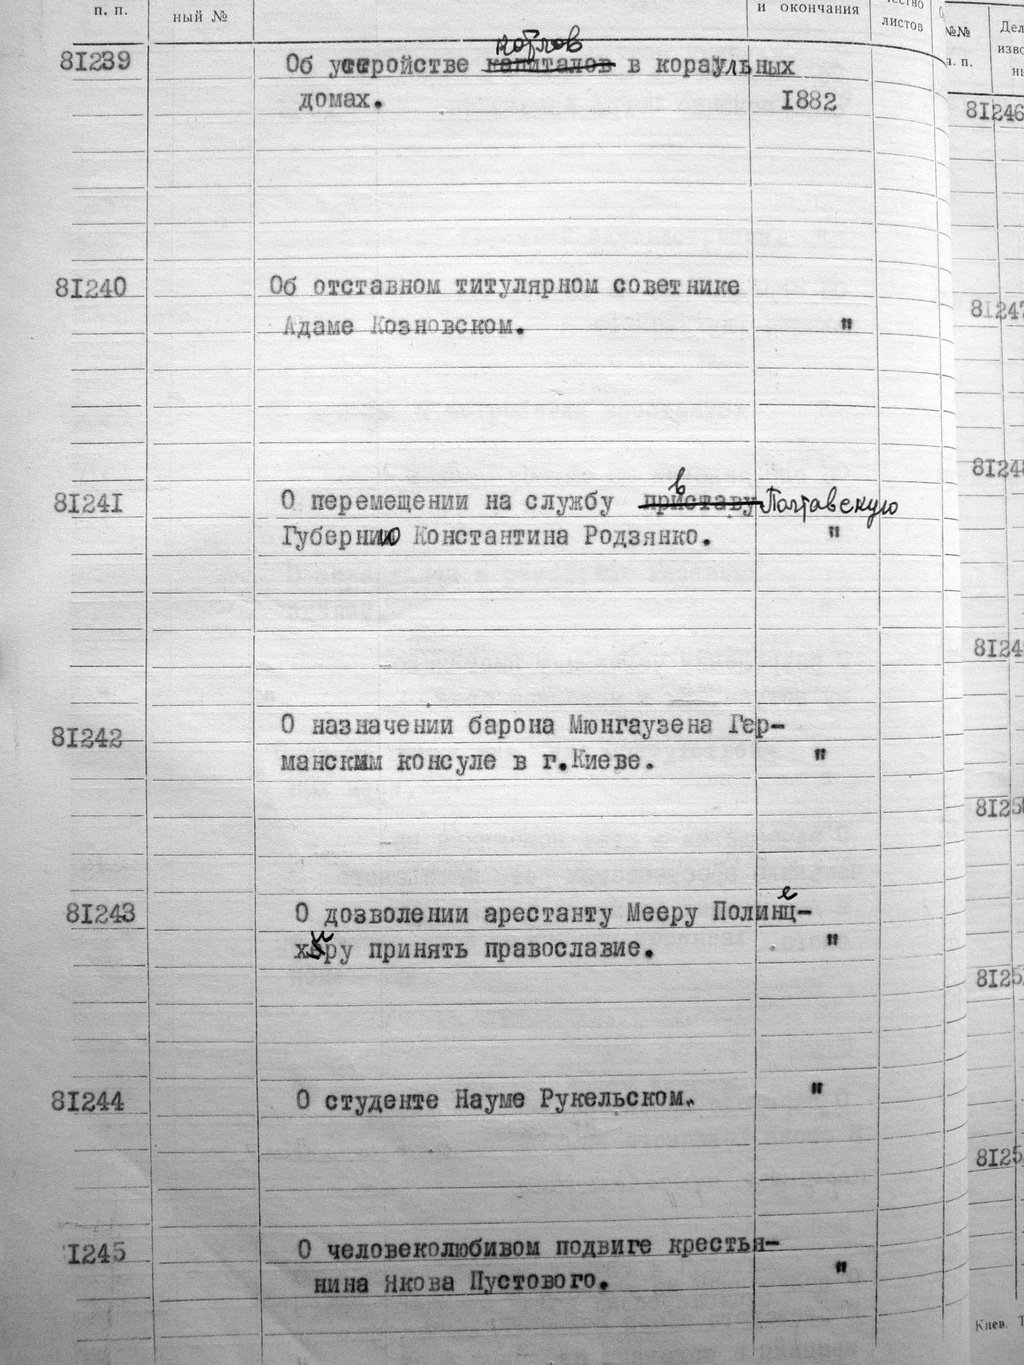 п. п.
ный №
и окончания
листов
№№
81239
котлов
Об устройстве капиталов в кораульных
домах.
1882
81240
Об отставном титулярном советнике
Адаме Козновском.
"
81241
в
О перемещении на службу приставу Полтавскую
Губернию Константина Родзянко.
"
81242
О назначении барона Мюнгаузена Гер-
манским консуле в г.Киеве.
"
81243
О дозволении арестанту Мееру Полинце-
херу принять православие.
"
81244
О студенте Науме Рукельском.
"
1245
О человеколюбивом подвиге крестья-
нина Якова Пустового.
"
81246
81247
8124
8124
8125
8125
8125
Киев.